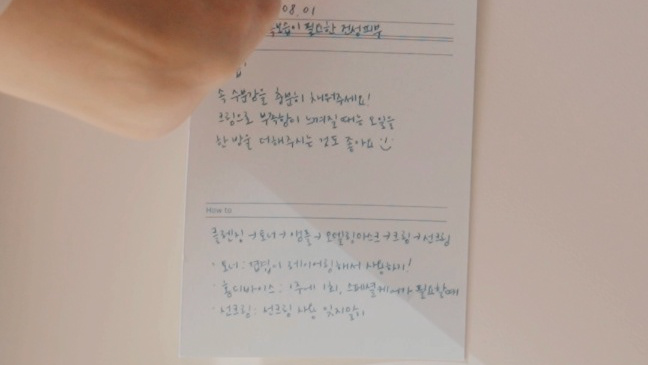 08.01
속보습이 필요한 건성피부
속 수분감을 충분히 채워주세요!
크림으로 부족함이 느껴질 때는 오일을
한 방울 더해주시는 것도 좋아요
How to
클렌징→토너→앰플→모델링마스크→크림→선크림
· 토너 : 겹겹이 레이어링해서 사용하기!
· 홈디바이스 : 1주에 1회, 스페셜케어가 필요할때
· 선크림 : 선크림 사용 잊지말기